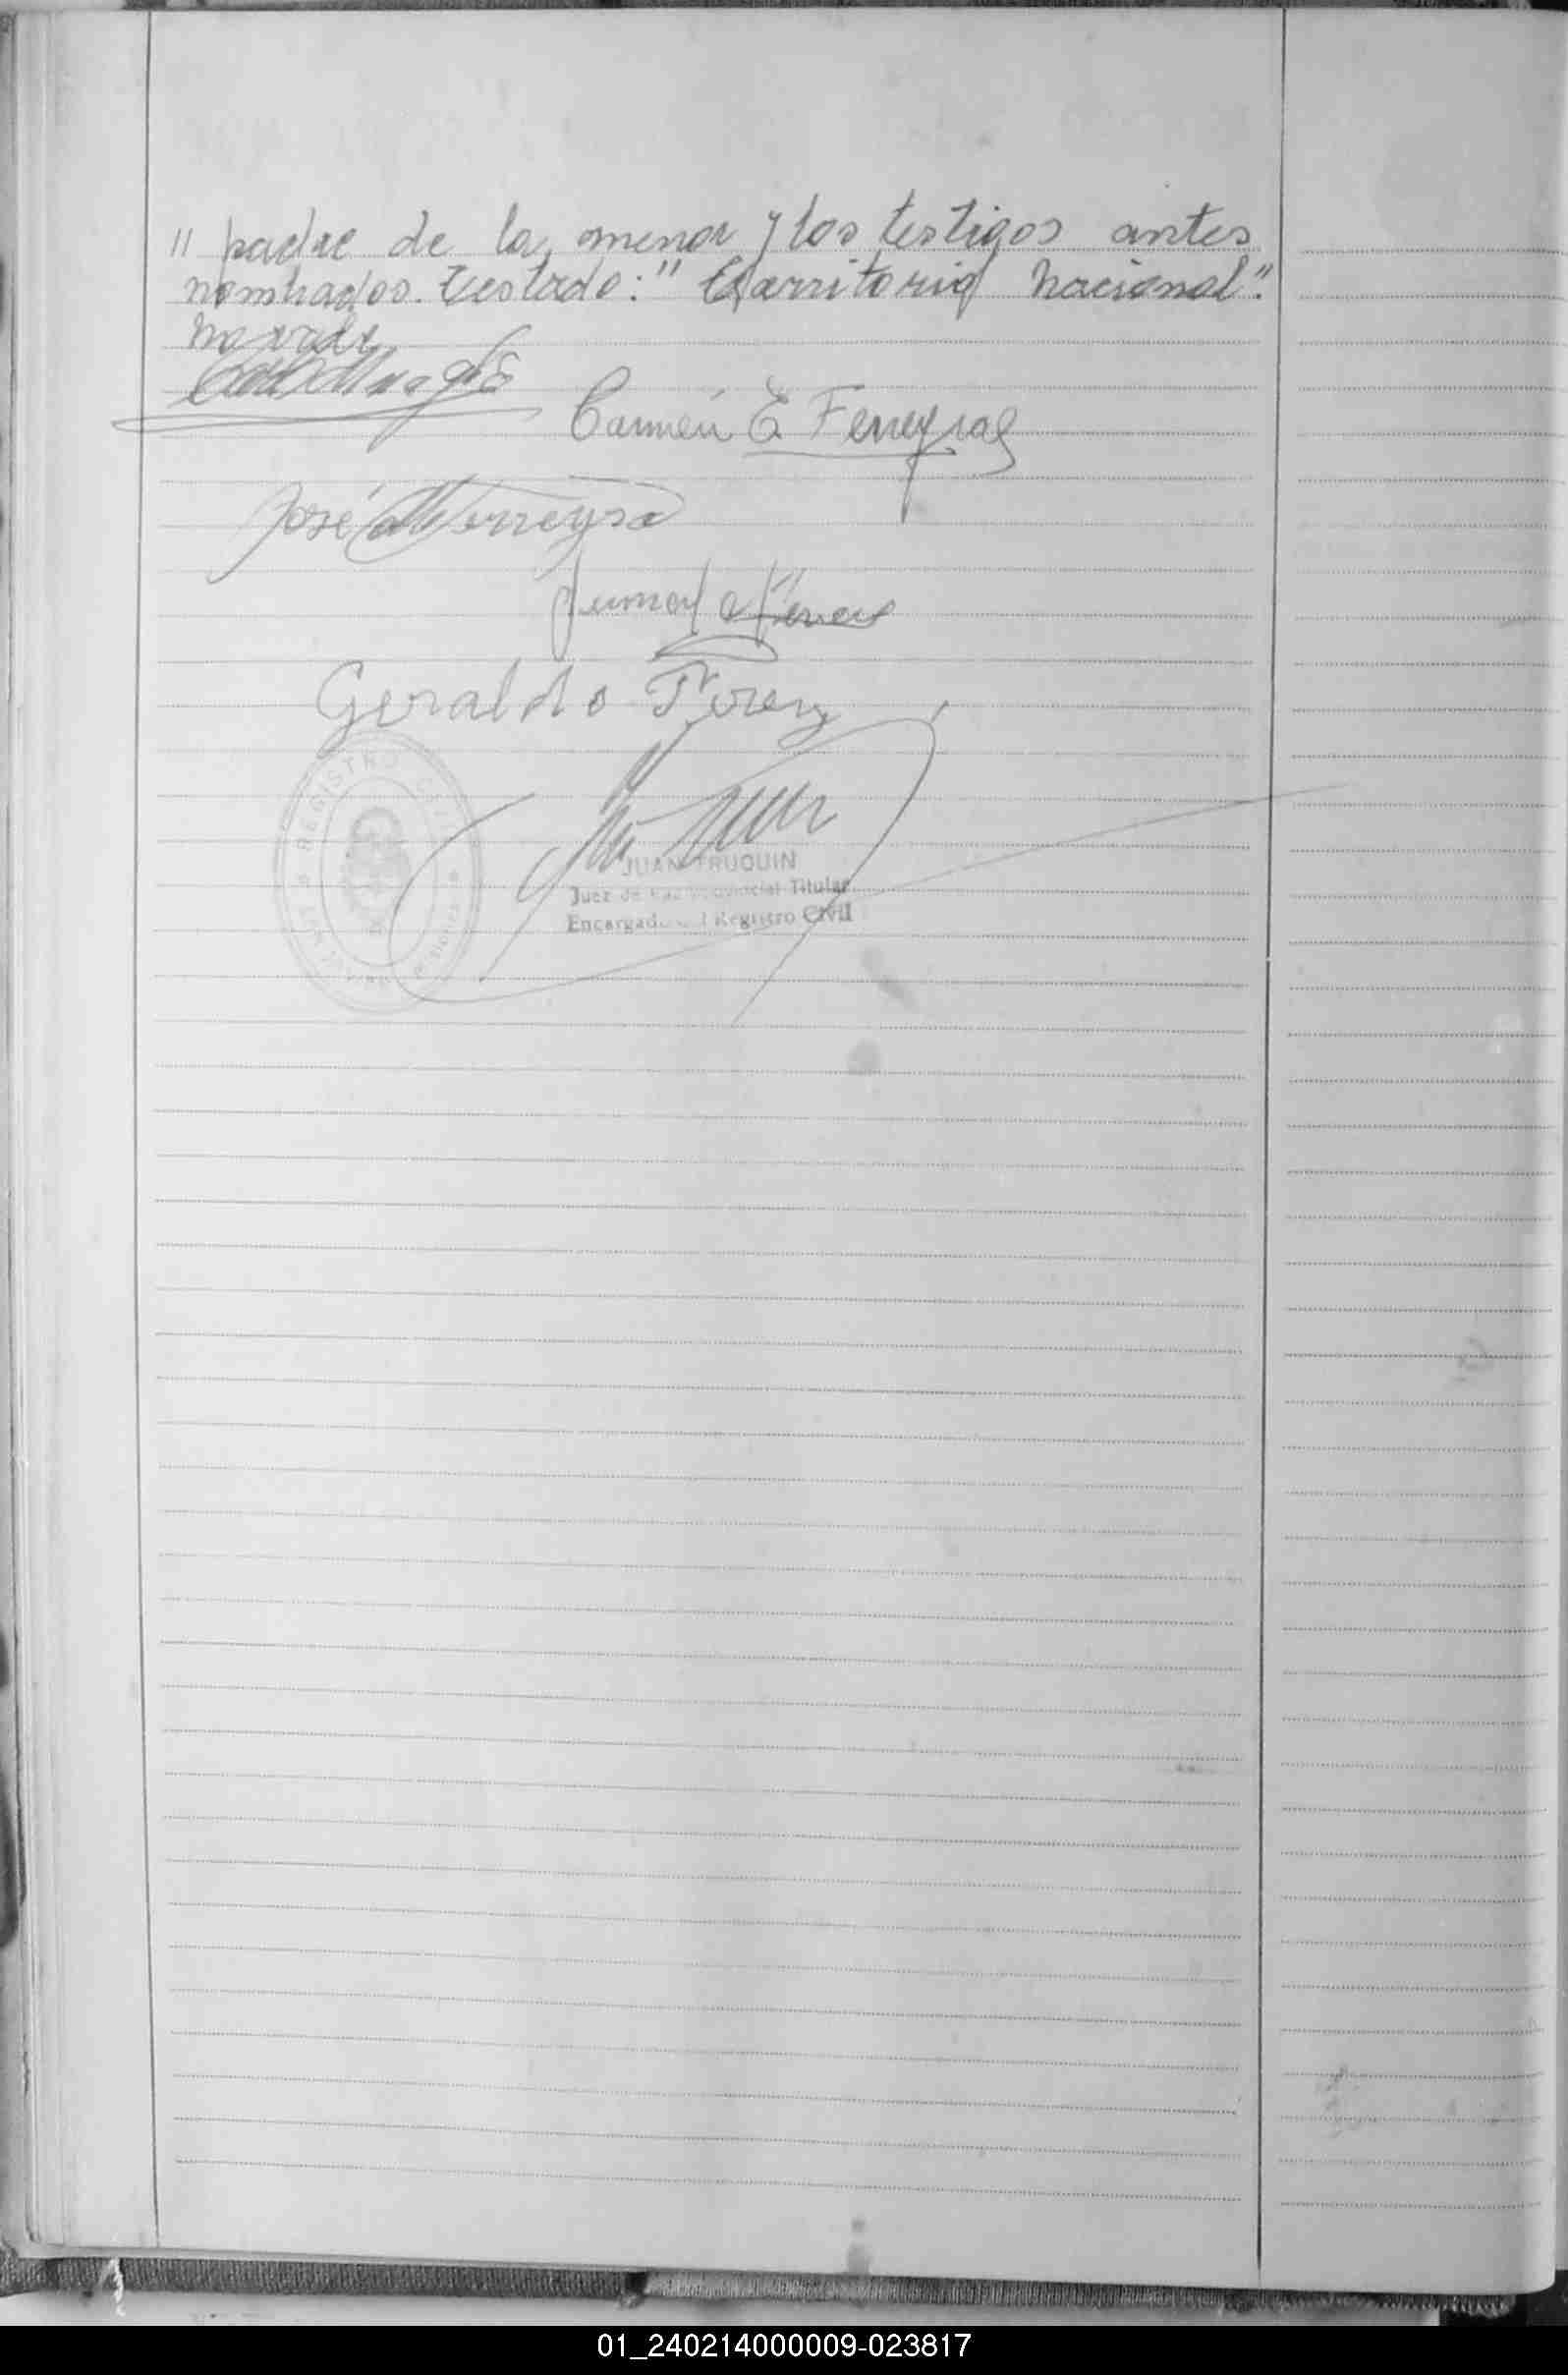 " padre de la menor y los testigos antes
nombrados. Testado: " Territorio Nacional".
no vale
Carmen E Ferreyra
José Ferreyra
Geraldo Perez
REGISTRO CIVIL
JUAN TRUQUIN
Juez de Paz Provincial Titular
Encargado del Registro Civil
01_240214000009-023817